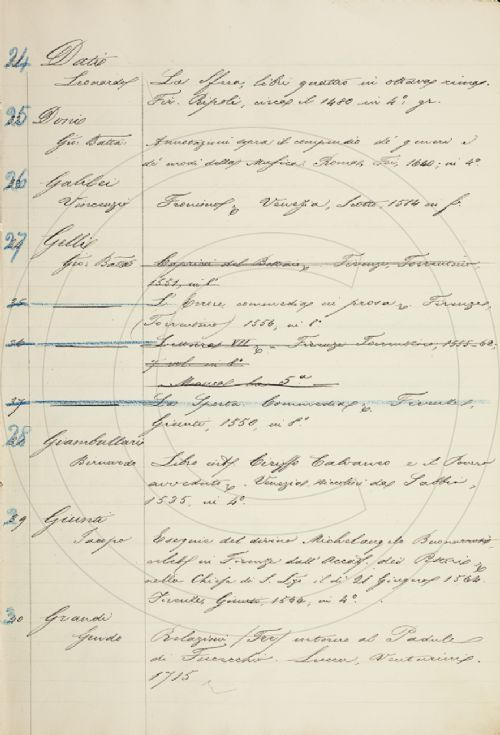 24 Datio
Leonardo La sfera, libri quattro in ottava rima.
Fir. Ripoli, circa il 1480 in 4.º gr.
25 Doni
Gio. Batta. Annotazioni sopra il compendio de' generi e
de' modi della Musica. Roma, Fei, 1640; in 4.º
26 Galilei
Vincenzo Fronimo, Venezia, Scotto, 1584 in f.
27 Gelli
Gio. Batta Capricci del Bottaio, Firenze, Torrentino,
1551, in 8º
35 La Sporta, commedia in prosa, Firenze,
(Torrentino) 1556, in 8º
36 Lettura VII, Firenze Torrentino, 1555-60.
7 vol. in 8º
Manca la 5ª
37 La Sporta Commedia, Firenze,
Giunti, 1550, in 8º
28 Giambullari
Bernardo Libro Ciriffo Calvaneo e il Povero
avveduto, Venezia Nicolini da Sabbio,
1535, in 4º
29 Giunti
Jacopo Esequie del divino Michelangelo Buonarroti
celeb. in Firenze dall'Accad. dei Pittori
nella Chiesa di S. Lorº il di 28 Giugno 1564.
Firenze, Giunti, 1564, in 4º
30 Grandi
Guido Relazioni (Tre) intorno al Padule
di Fucecchio. Lucca, Venturini.
1715